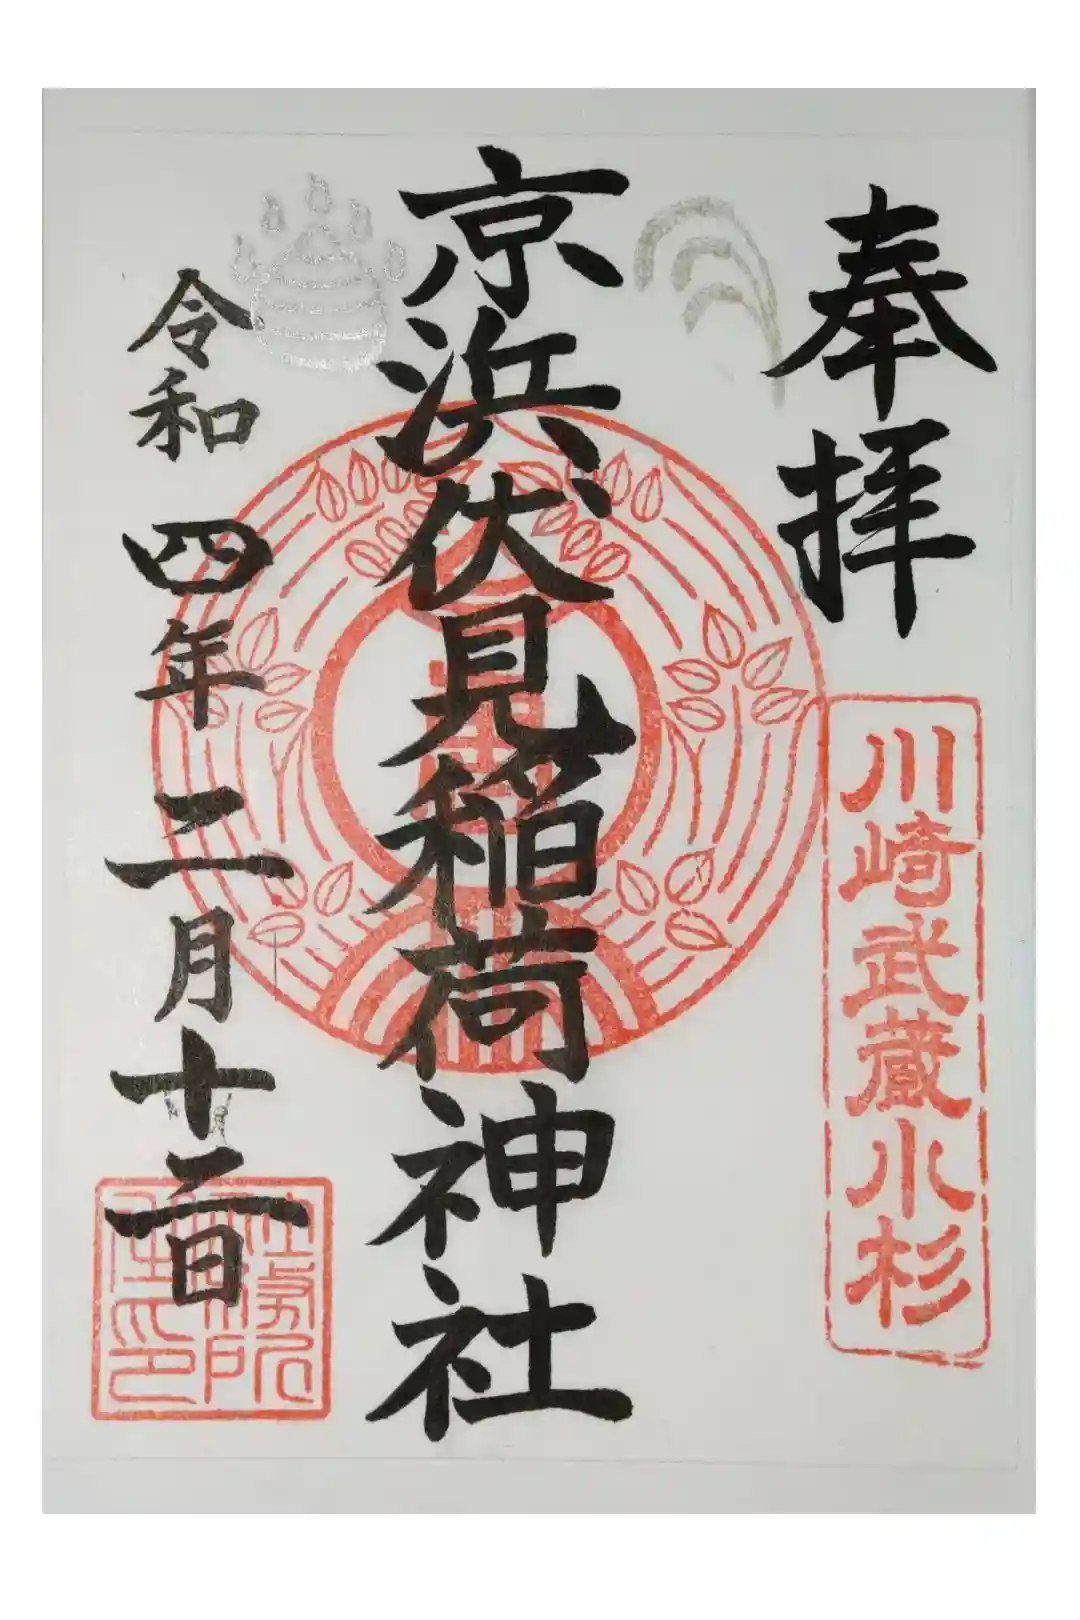 奉拝
川崎武蔵小杉
京浜伏見稲荷神社
令和四年二月十二日